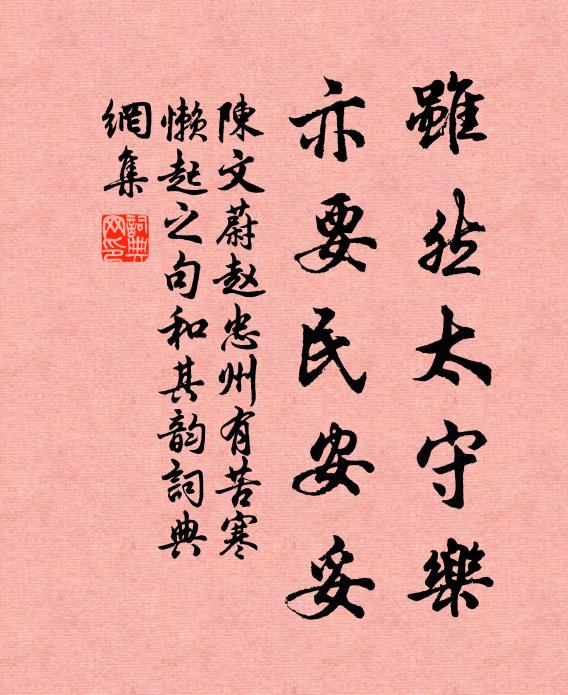 雖然太守樂
亦要民安妥
陳文蔚赵忠州有苦寒
懒起之句和其韵詞典
網集
詞典网印